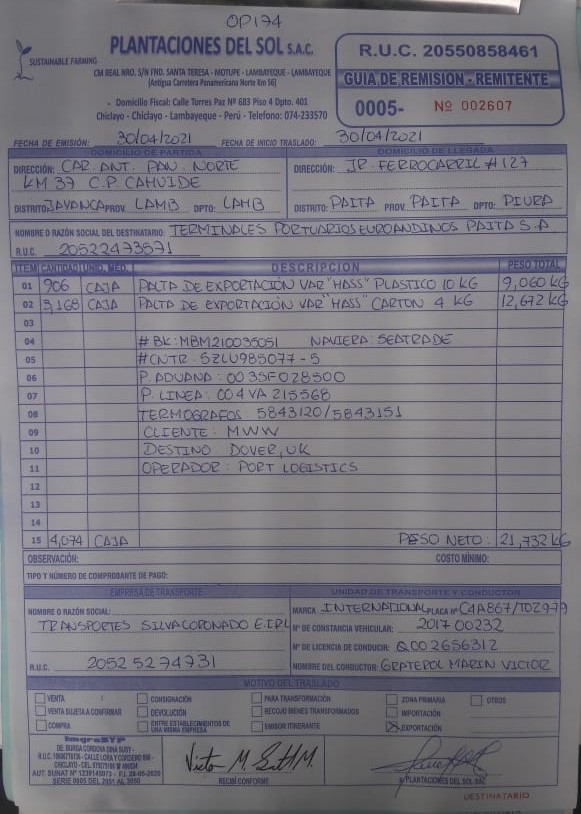 OP174
SUSTAINABLE FARMING
PLANTACIONES DEL SOL S.A.C.
CM REAL NRO. S/N FND. SANTA TERESA - MOTUPE - LAMBAYEQUE - LAMBAYEQUE
(Antigua Carretera Panamericana Norte Km 56)
- Domicilio Fiscal: Calle Torres Paz Nº 683 Piso 4 Dpto. 401
Chiclayo - Chiclayo - Lambayeque - Perú - Telefono: 074-233570
R.U.C. 20550858461
GUIA DE REMISION - REMITENTE
0005- Nº 002607
FECHA DE EMISIÓN: 30/04/2021 FECHA DE INICIO TRASLADO: 30/04/2021
DOMICILIO DE PARTIDA
DIRECCIÓN: CAR. ANT. PAN. NORTE
KM 37 C.P. CAHUIDE
DISTRITO JAYANCA PROV. LAMB DPTO: LAMB
DOMICILIO DE LLEGADA
DIRECCIÓN: JR. FERROCARRIL #127
DISTRITO: PAITA PROV. PAITA DPTO: PIURA
NOMBRE O RAZÓN SOCIAL DEL DESTINATARIO: TERMINALES PORTUARIOS EUROANDINOS PAITA S.A
R.U.C. 20522473571
ITEM CANTIDAD UNID. MED. DESCRIPCION PESO TOTAL
01 906 CAJA PALTA DE EXPORTACIÓN VAR "HASS" PLASTICO 10 KG 9,060 KG
02 3,168 CAJA PALTA DE EXPORTACIÓN VAR "HASS" CARTON 4 KG 12,672 KG
03
04 # BK: MBM210035051 NAVIERA: SEATRADE
05 #CNTR: SZLU985077-5
06 P. ADUANA: 0035F028500
07 P. LINEA: 004VA 215568
08 TERMOGRAFOS: 5843120/5843151
09 CLIENTE: MWW
10 DESTINO: DOVER, UK
11 OPERADOR: PORT LOGISTICS
12
13
14
15 4,074 CAJA PESO NETO: 21,732 KG
OBSERVACIÓN: COSTO MÍNIMO:
TIPO Y NÚMERO DE COMPROBANTE DE PAGO:
EMPRESA DE TRANSPORTE
NOMBRE O RAZÓN SOCIAL:
TRANSPORTES SILVA CORONADO E.I.RL
R.U.C. 20525274731
UNIDAD DE TRANSPORTE Y CONDUCTOR
MARCA INTERNATIONAL PLACA Nº C4A867/TOZ979
Nº DE CONSTANCIA VEHICULAR: 2017 00232
Nº DE LICENCIA DE CONDUCIR: Q002656312
NOMBRE DEL CONDUCTOR: GRATEROL MARIN VICTOR
MOTIVO DEL TRASLADO
VENTA CONSIGNACIÓN PARA TRANSFORMACIÓN ZONA PRIMARIA OTROS
VENTA SUJETA A CONFIRMAR DEVOLUCIÓN RECOJO BIENES TRANSFORMADOS IMPORTACIÓN
COMPRA ENTRE ESTABLECIMIENTOS DE UNA MISMA EMPRESA EMISOR ITINERANTE X EXPORTACIÓN
ImgraSYP
DE: BURGA CORDOVA DINA SUSY -
SERIE 0005 DEL 2051 AL 3050
RECIBÍ CONFORME
P. PLANTACIONES DEL SOL SAC
DESTINATARIO